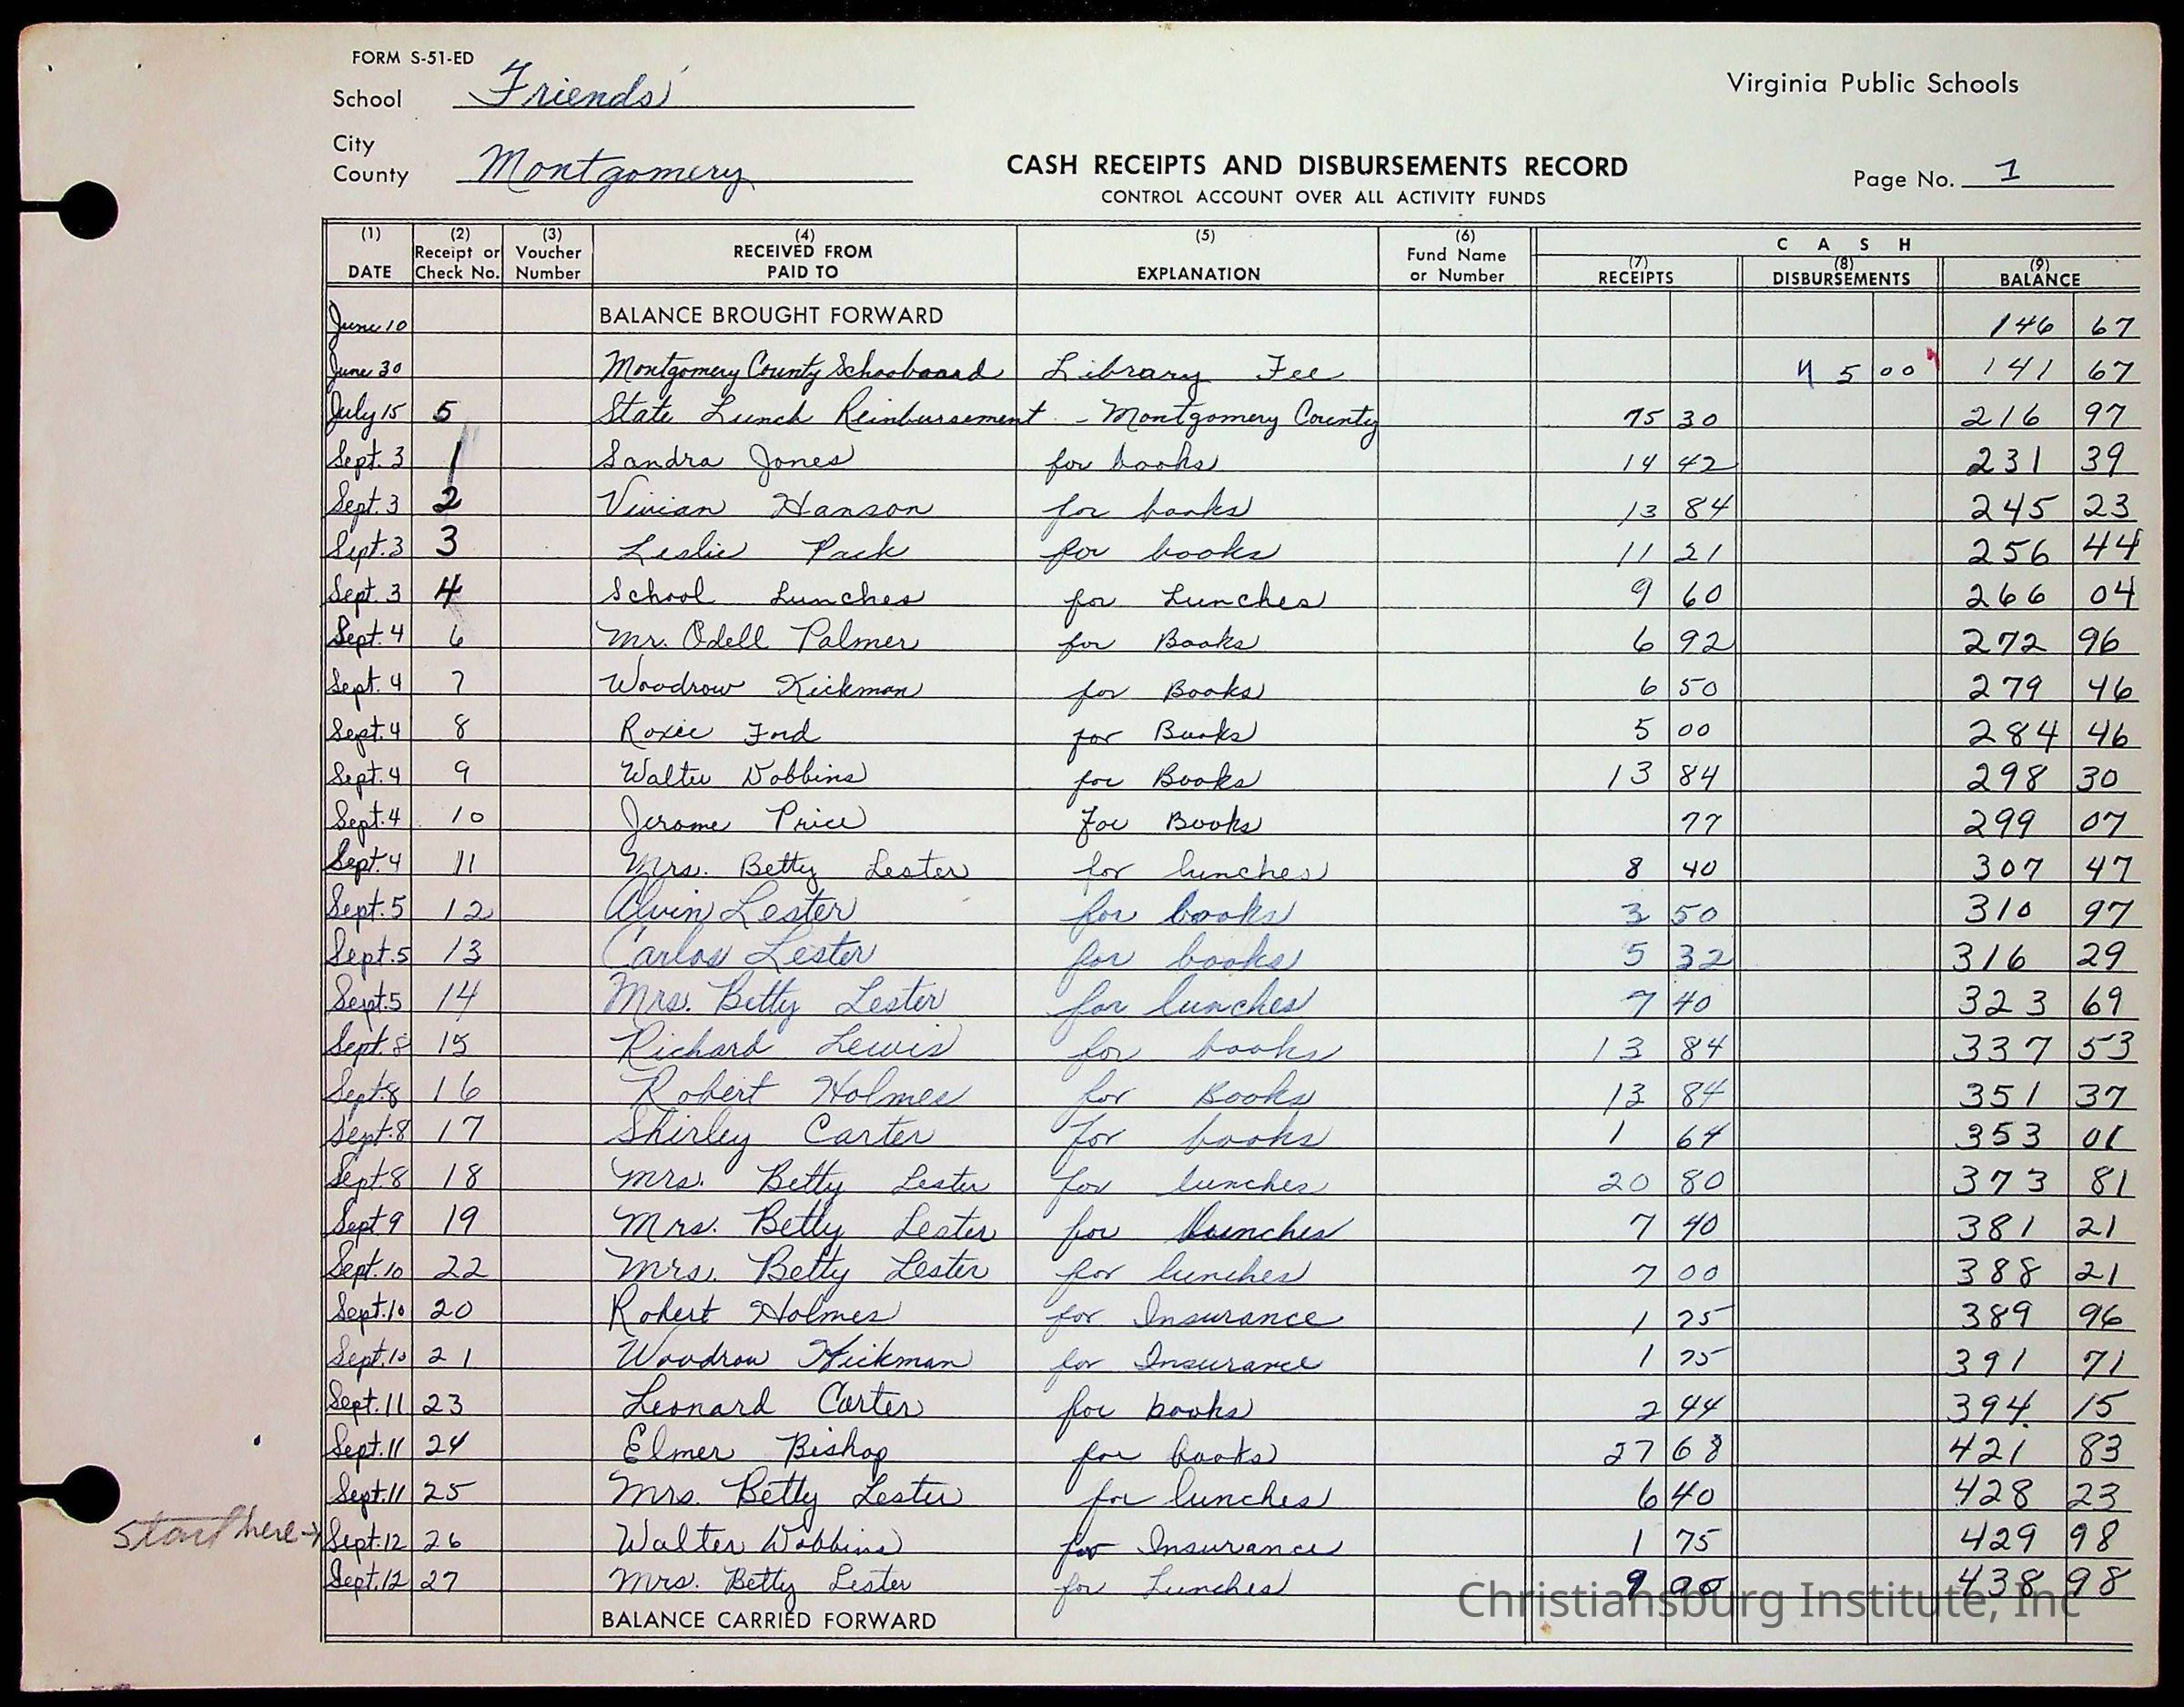 FORM S-51-ED
School Friends'
Virginia Public Schools
City
County Montgomery
CASH RECEIPTS AND DISBURSEMENTS RECORD
CONTROL ACCOUNT OVER ALL ACTIVITY FUNDS
Page No. 1
(1) DATE (2) Receipt or Check No. (3) Voucher Number (4) RECEIVED FROM PAID TO (5) EXPLANATION (6) Fund Name or Number CASH (7) RECEIPTS (8) DISBURSEMENTS (9) BALANCE
June 10 BALANCE BROUGHT FORWARD 146 67
June 30 Montgomery County Schoolboard Library Fee 5 00 141 67
July 15 5 State Lunch Reinbursement - Montgomery County 75 30 216 97
Sept. 3 1 Sandra Jones for books 14 42 231 39
Sept. 3 2 Vivian Hanson for books 13 84 245 23
Sept. 3 3 Leslie Pack for books 11 21 256 44
Sept. 3 4 School Lunches for Lunches 9 60 266 04
Sept. 4 6 Mr. Odell Palmer for Books 6 92 272 96
Sept. 4 7 Woodrow Hickman for Books 6 50 279 46
Sept. 4 8 Roxie Ford for Books 5 00 284 46
Sept. 4 9 Walter Dobbins for Books 13 84 298 30
Sept. 4 10 Jerome Price For Books 77 299 07
Sept. 4 11 Mrs. Betty Lester for lunches 8 40 307 47
Sept. 5 12 Alvin Lester for books 3 50 310 97
Sept. 5 13 Carlos Lester for books 5 32 316 29
Sept. 5 14 Mrs. Betty Lester for lunches 7 40 323 69
Sept. 8 15 Richard Lewis for books 13 84 337 53
Sept. 8 16 Robert Holmes for Books 13 84 351 37
Sept. 8 17 Shirley Carter for books 1 64 353 01
Sept 8 18 Mrs. Betty Lester for lunches 20 80 373 81
Sept 9 19 Mrs. Betty Lester for lunches 7 40 381 21
Sept. 10 22 Mrs. Betty Lester for lunches 7 00 388 21
Sept. 10 20 Robert Holmes for Insurance 1 75 389 96
Sept. 10 21 Woodrow Hickman for Insurance 1 75 391 71
Sept. 11 23 Leonard Carter for books 2 44 394 15
Sept. 11 24 Elmer Bishop for books 27 68 421 83
Sept. 11 25 Mrs. Betty Lester for lunches 6 40 428 23
Start here → Sept. 12 26 Walter Dobbins for Insurance 1 75 429 98
Sept. 12 27 Mrs. Betty Lester for Lunches 9 00 438 98
BALANCE CARRIED FORWARD
Christiansburg Institute, Inc